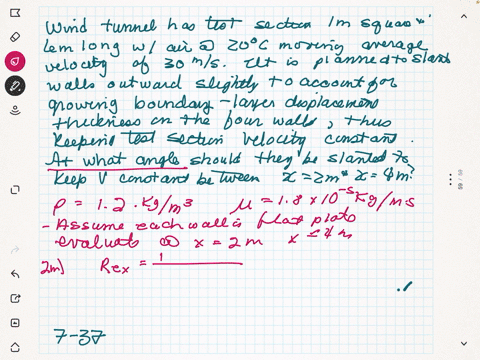 Wind tunnel has test section 1m square w/
6m long w/ air @ 20°C moving average
velocity of 30 m/s. It is planned to slant
walls outward slightly to account for
growing boundary-layer displacement
thickness on the four walls, thus
Keeping test section velocity constant.
At what angle should they be slanted to
keep V constant between x=2m x=4m?
ρ = 1.2 kg/m³ μ = 1.8 x 10⁻⁵ kg/m s
- Assume each wall is flat plate
evaluate @ x = 2 m x = 4 m
2m) Rex =
7-37